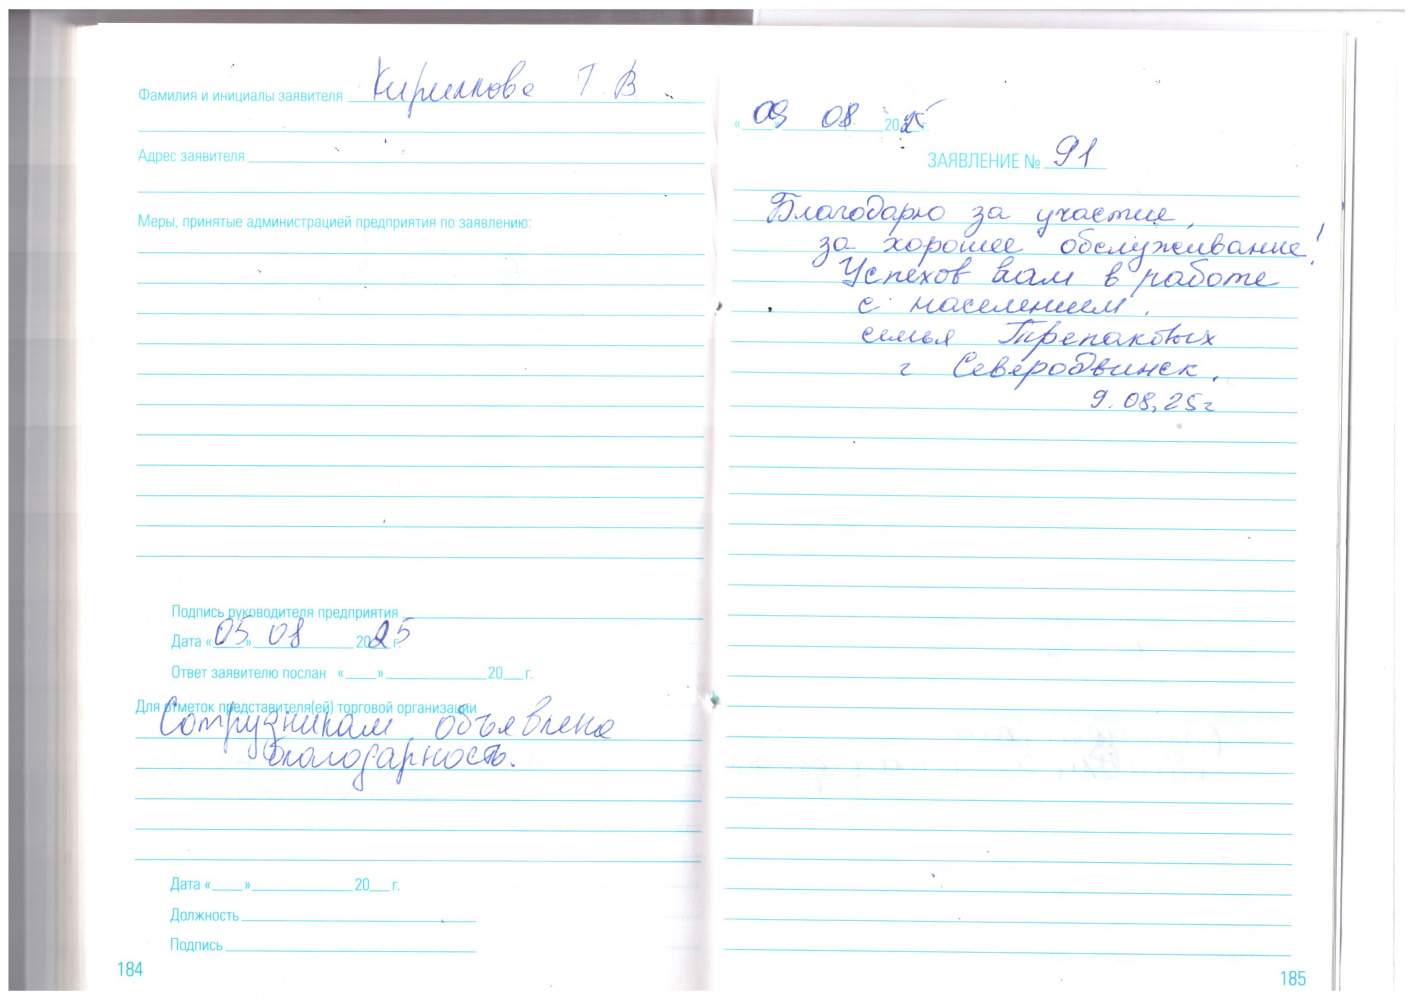 Фамилия и инициалы заявителя Кириллова Т. В
Адрес заявителя
Меры, принятые администрацией предприятия по заявлению:
Подпись руководителя предприятия
Дата «05» 08 2025 г.
Ответ заявителю послан « » 20 г.
Для отметок представителя(ей) торговой организации
Сотрудникам объявлена
благодарность.
Дата « » 20 г.
Должность
Подпись
184
« 09 08 2025
ЗАЯВЛЕНИЕ № 91
Благодарю за участие,
за хорошее обслуживание!
Успехов вам в работе
с населением.
семья Трепаковых
г Северодвинск.
9.08,25г
185